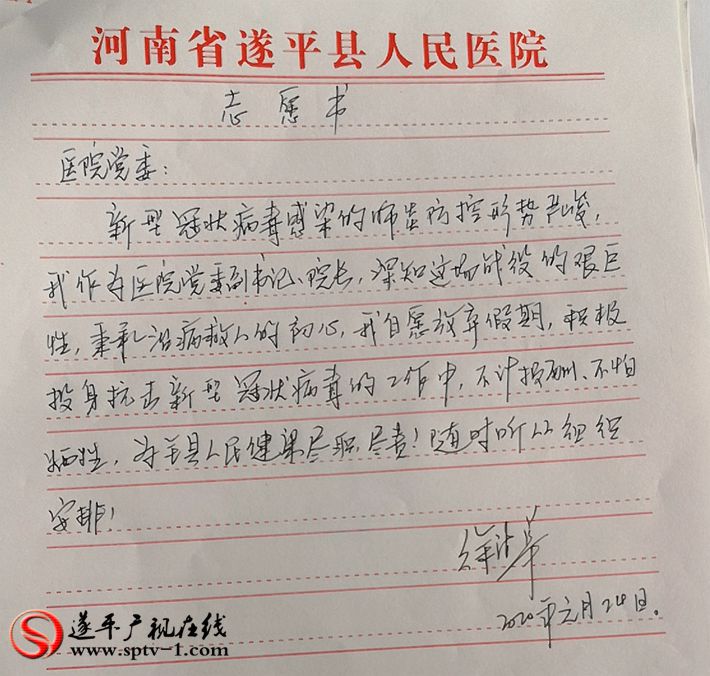 河南省遂平县人民医院
志愿书
医院党委：
新型冠状病毒感染的肺炎防控形势严峻，
我作为医院党委副书记、院长，深知这场战役的艰巨
性，秉承治病救人的初心，我自愿放弃假期，积极
投身抗击新型冠状病毒的工作中，不计报酬、不怕
牺牲，为全县人民健康尽职尽责！随时听从组织
安排！
2020年元月24日。
遂平广视在线
www.sptv-1.com